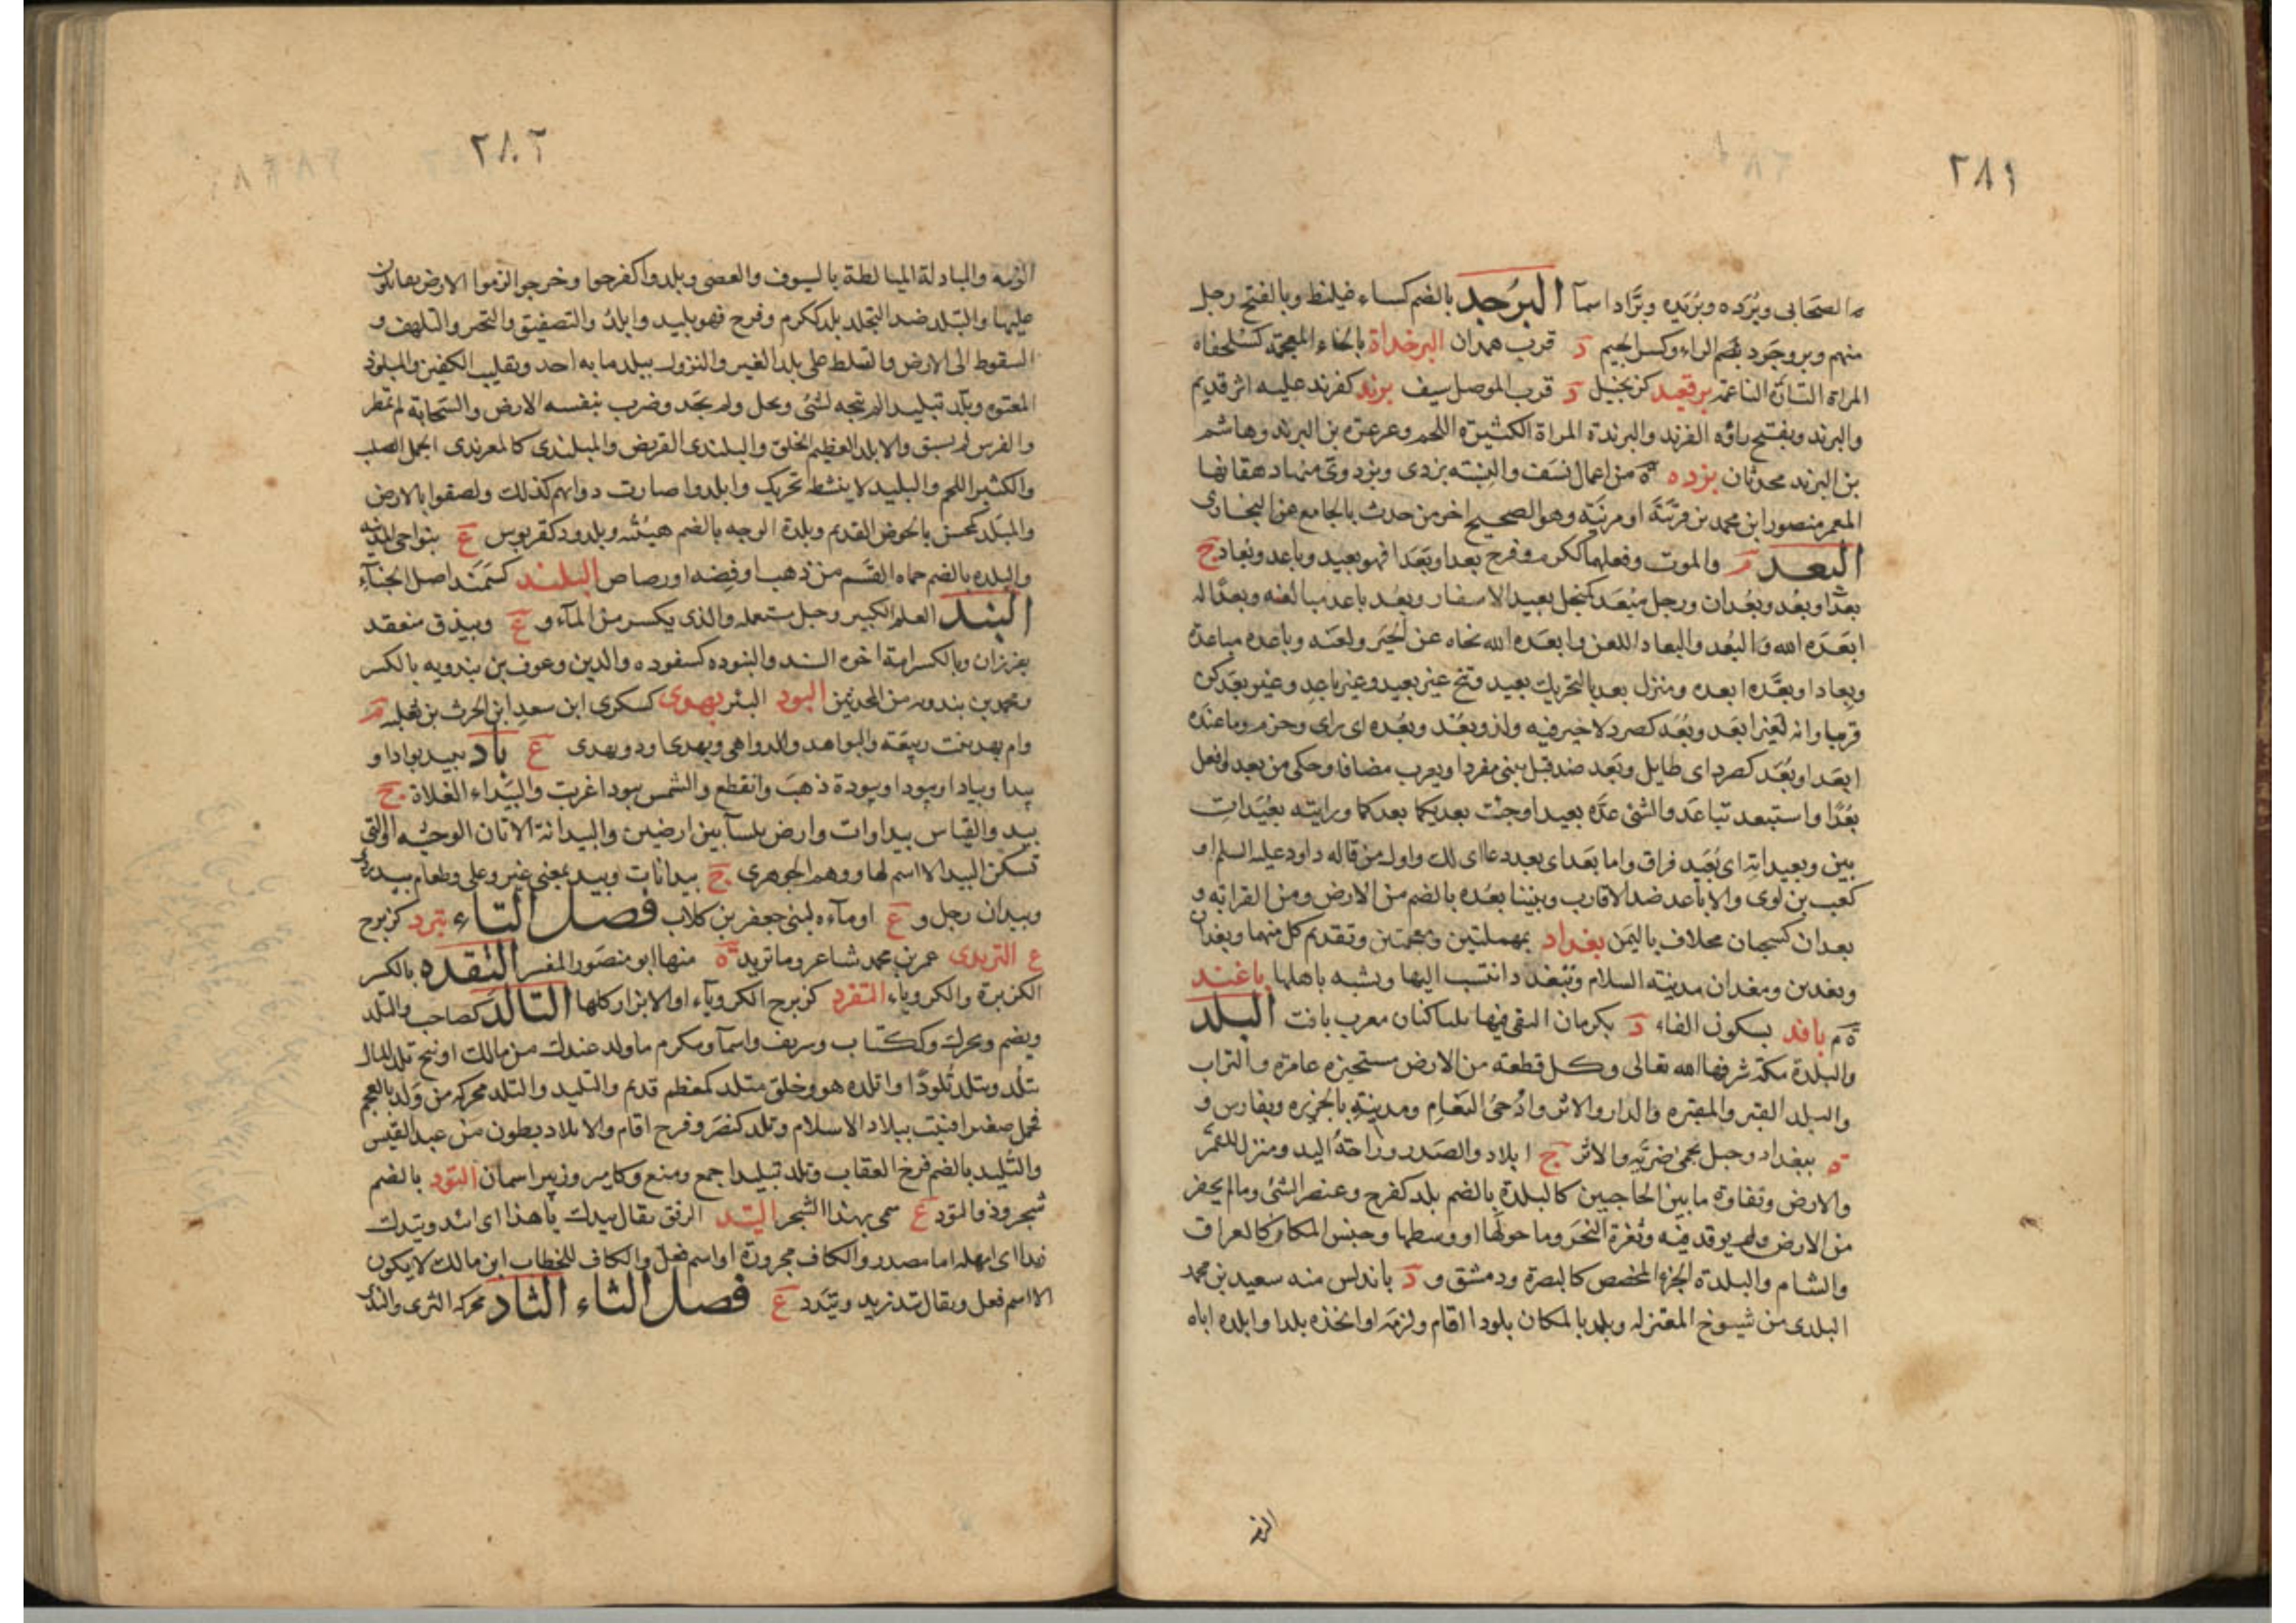 ٢٨١
الصحابى وبرده وبريده وبرّاد اسمآ البُرْجد بالضم كساء غليظ وبالفتح رجل
منهم وبروجرد بضم الراء وكسر الجيم د قرب همدان البرخداة بالخاء المعجمة كسلحفاة
المراة التارّة الناعمة برقعيد كزنجبيل د قرب الموصل سيف برند كفرند عليه اثر قديم
والبرند وبفتح راؤه الفرند والبرندة المراة الكثيرة اللحم وعرعرة بن البرند وهاشم
بن البرند محدثان بزده ة من اعمال نسف والنسبة بزدى وبزدوى منها دهقانها
المعمر منصور ابن محمد بن قرينة او مزينة وهو الصحيح اخر من حدث بالجامع عن البخارى
البعد م والموت وفعلهما ككرم وفرح بعدا وبَعَدا فهو بعيد وباعد وبعاد ج
بعداء وبعد وبعدان ورجل مِبْعَد كمنجل بعيد الاسفار وبعد باعد مبالغه وبعدا له
ابعده الله والبُعد والبعاد اللعن وابعَده الله نحاه عن الخير ولعنه وباعده مباعدة
وبعادا وبعّده ابعده ومنزل بعد بالتحريك بعيد وتنح غير بعيد وغير باعد وغير بعد كن
قريبا وانه لغير ابعد وبُعَد كصرد لا خير فيه ولذو بعد وبعده اى راى وحزم وما عنده
ابعَد او بُعَد كصرد اى طايل وبَعد ضد قبل يبنى مفردا ويعرب مضافا وحكى من بعد وافعل
بُعْدًا واستبعد تباعَد والشئ عدّه بعيدا وجئت بعديكما بعدكما ورايته بعيدات
بين وبعيداته اى بُعَيد فراق واما بعد اى بعد دعاى لك واول من قاله داود عليه السلم او
كعب بن لوى والاباعد ضد الاقارب وبيننا بعده بالضم من الارض ومن القرابه و
بعدان كسحبان مخلاف باليمن بغداد بمهملتين ومعجمتين وتقديم كل منهما وبغدان
وبغدين ومغدان مدينه السلام وتبغدد انتسب اليها وتشبه باهلها باغند
ة م بافد بسكون الفاء د بكرمان التقى فيها ساكنان معرب بافت البلد
والبلدة مكة شرفها الله تعالى وكل قطعه من الارض مستحيزه عامرة والتراب
والبلد القبر والمقبره والدار والاثر وادحى النعام ومدينة بالجزيره وبفارس و
ة ببغداد وجبل بحمى ضريه والاثر ج ابلاد والصدر وراحة اليد ومنزل للقمر
والارض ونقاوة ما بين الحاجبين كالبلدة بالضم بلد كفرح وعنصر الشئ وما لم يحفر
من الارض ولم يوقد فيه وثغرة النحر وما حولها او وسطها وجنس المكان كالعراق
والشام والبلدة الجزء المخصص كالبصرة ودمشق و د باندلس منه سعيد بن محمد
البلدى من شيوخ المعتزله وبلد بالمكان بلودا اقام ولزمه او اتخذه بلدا وابلده اياه
الزمه
٢٨٢
الزمه والمبادلة المبالطة بالسيوف والعصى وبلدوا كفرحوا وخرجوا لزموا الارض يقاتلون
عليها والتبلد ضد التجلد بلد ككرم وفرح فهو بليد وابلد والتصفيق والتحير والتلهف و
السقوط الى الارض والتسلط على بلد الغير والنزول ببلد ما به احد وتقليب الكفين والمبلود
المعتوه وبلّد تبليدا لم يتجه لشئ وبخل ولم يَجُد وضرب بنفسه الارض والسحابة لم تمطر
والفرس لم يسبق والابلد العظيم الخلق والبلندى العريض والمبلندى كالمعرندى الجمل الصلب
والكثير اللحم والبليد لا ينشطه تحريك وابلدوا صارت دوابهم كذلك ولصقوا بالارض
والمبلد كمحسن بالحوض القديم وبلدة الوجه بالضم هيئته وبلدود كقربوس ع بنواحى المدينه
والبلده بالضم حماه القسم من ذهب او فضه او رصاص البلند كسمند اصل الحناء
البند العلم الكبير وحيل مستعمله والذى يكسر من المآء و ع وبيذق منعقد
بفرزان وبالكسر امة اخوه السند والبنوده كسفوده والدبر وعوف بن بندويه بالكسر
ومحمد بن بندويه من المحدثين البود البئر بهدى كسكرى ابن سعد ابن الحرث بن ثعلبه م
وام بهد بنت ربيعة والبواهد والدواهى وبهدى وذو بهدى ع باد يبيد بوادا و
بيدا وبيادا وبيودا وبيدودة ذهب وانقطع والشمس بيودا غربت والبيداء الفلاة ج
بيد والقياس بيداوات وارض ملسآ بين ارضين والبيدانة الاتان الوحشيه او التى
تسكن البيدا لا اسم لها ووهم الجوهرى ج بيدانات وبيد بمعنى غير وعلى وطعام بيد ردئ
وبيدان رجل و ع او مآءه لبنى جعفر بن كلاب فصل التاء تبرد كزبرج
ع التريدى عمر بن محمد شاعر وماتريد ة منها ابو منصور المفسر التقده بالكسر
الكزبرة والكروياء التقرد كزبرج الكروياء او الابزار كلها التالد كصاحب والتلد
ويضم ومحرك وككتاب وسريف واسمآ ومكرم ما ولد عندك من مالك او نتج تلد المال
يتلد ويتلد تلودا واتلده هو وخلق متلد كمعظم قديم والتليد والتلد محركه من ولد بالعجم
فحمل صغيرا فنبت ببلاد الاسلام وتلد كنصر وفرح اقام والاتلاد بطون من عبد القيس
والتليد بالضم فرخ العقاب وتلد تبليدا جمع ومنع وكامير وزبير اسمان التود بالضم
شجر وذو التود ع سمى بهذا الشجر التيد الرفق يقال تيدك يا هذا اى اتئد وتيدك
زيدا اى امهله اما مصدر والكاف مجرورة او اسم فعل والكاف للخطاب ابن مالك لا يكون
الا اسم فعل ويقال تيد زيد وتيدد ع فصل الثاء الثاد محركه الثرى والندى